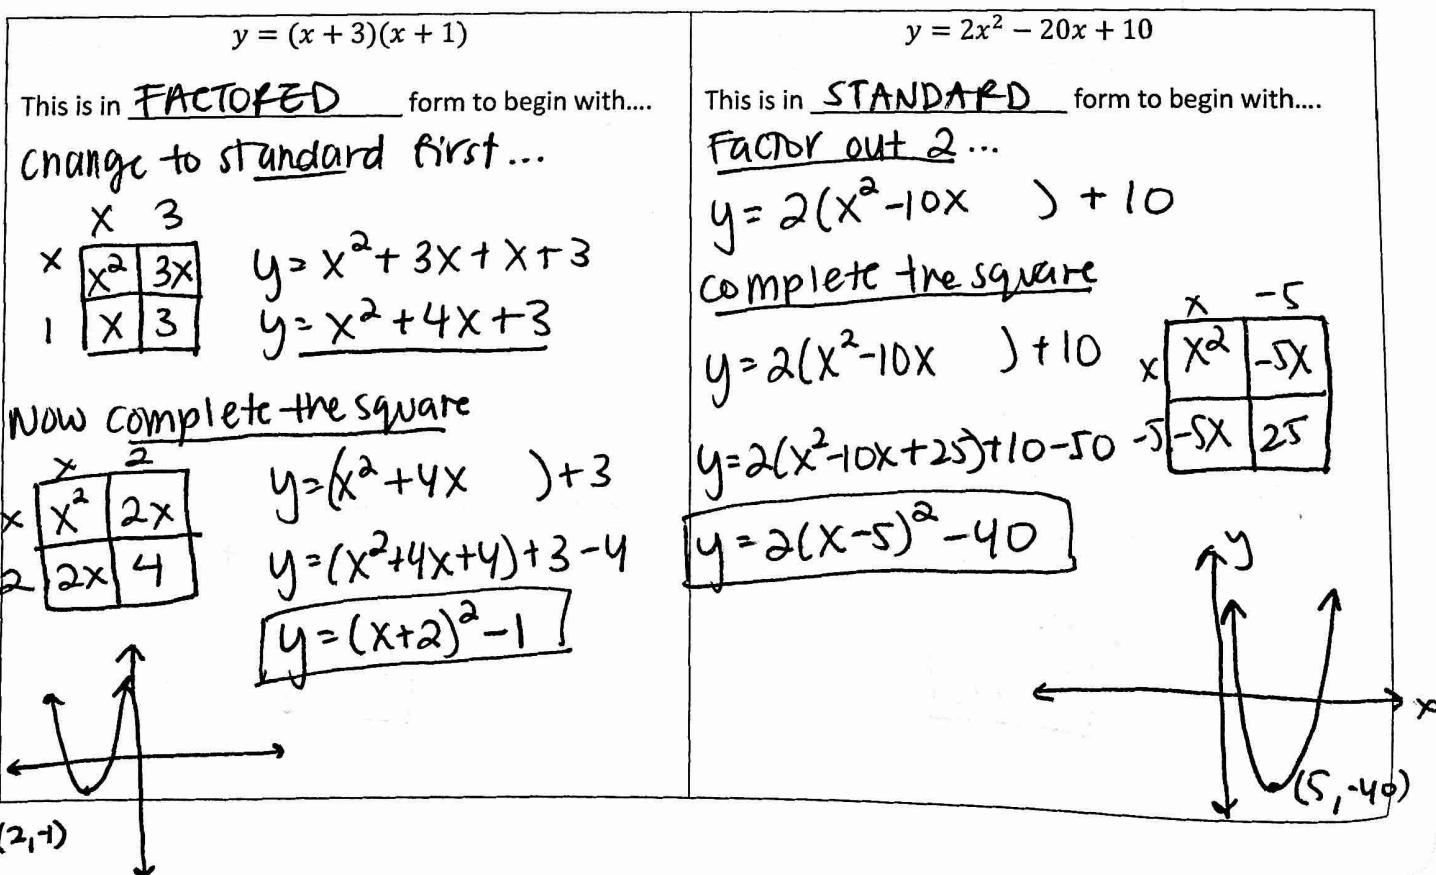 y = (x + 3)(x + 1)
This is in FACTORED form to begin with....
change to standard first...
x 3
x x² 3x
1 x 3
y = x² + 3x + x + 3
y = x² + 4x + 3
Now complete the square
x 2
x x² 2x
2 2x 4
y = (x² + 4x ) + 3
y = (x² + 4x + 4) + 3 - 4
y = (x+2)² - 1
(2,-1)
y = 2x² − 20x + 10
This is in STANDARD form to begin with....
Factor out 2...
y = 2(x² - 10x ) + 10
complete the square
y = 2(x² - 10x ) + 10
y = 2(x² - 10x + 25) + 10 - 50
y = 2(x-5)² - 40
x -5
x x² -5x
-5 -5x 25
y
x
(5, -40)